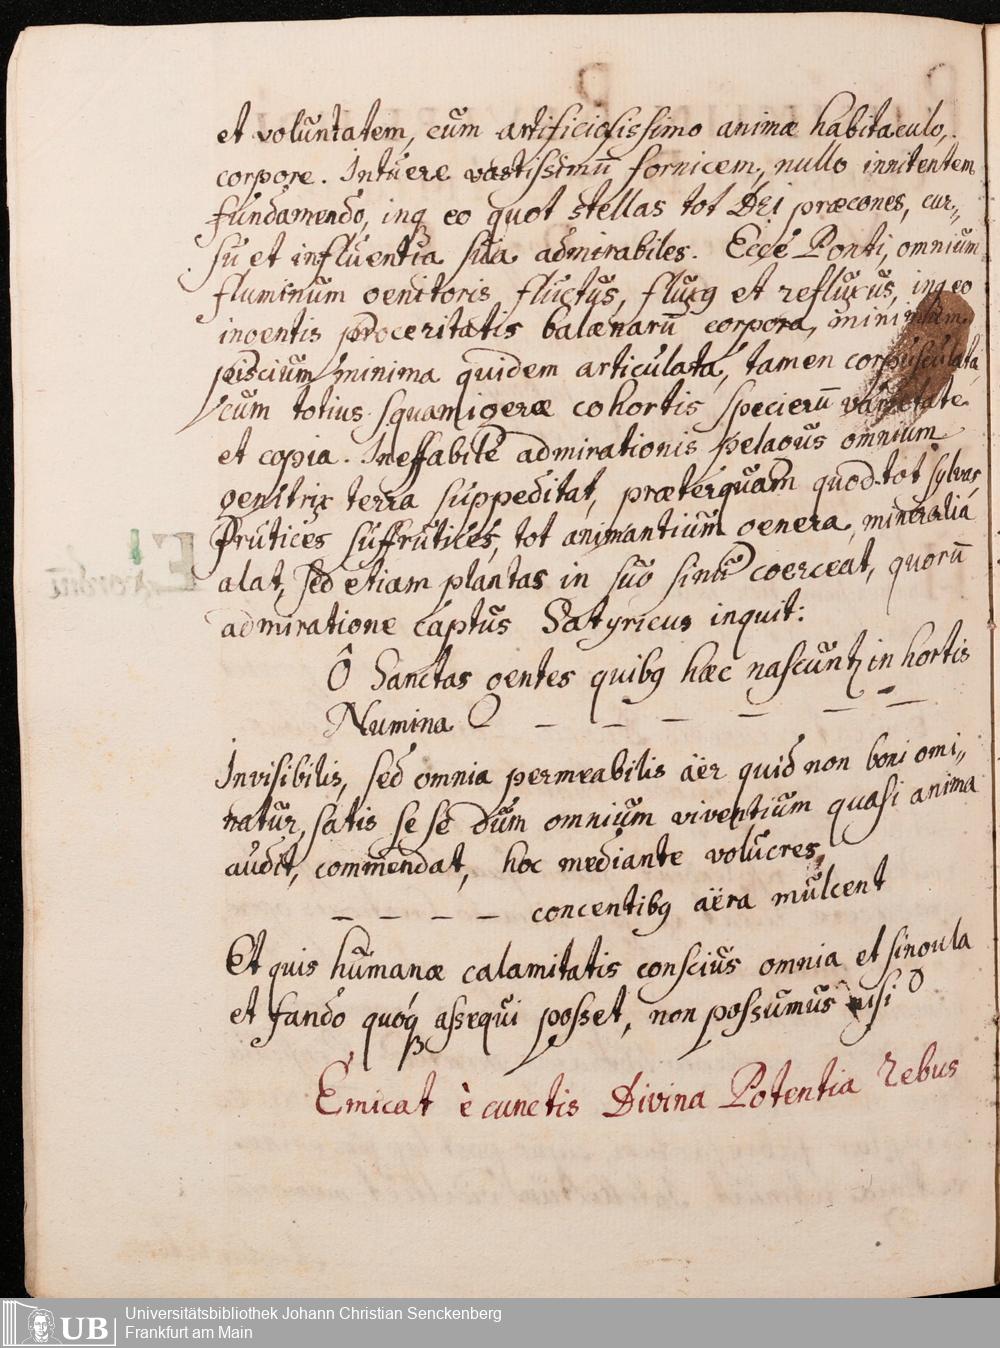 et voluntatem, cum artificiosissimo animæ habitaculo,
corpore. Intuere vastissimū fornicem, nullo innitentem
fundamendo, inq̃ eo quot stellas tot DEI præcones, cur„
su et influentia sua admirabiles. Ecce Ponti, omnium
fluminum genitoris fluctus, fluxq et refluxus, inq̃ eo
ingentis proceritatis balænarū corpora, minimum
piscium minima quidem articulata, tamen corpuscula
cum totius squamigeræ cohortis specierū varietate
et copia. Ineffabile admirationis pelagus omnium
genitrix terra suppeditat, præterquam quod tot sylvas,
Frutices suffrutices, tot animantium genera, mineralia
alat, sed etiam plantas in suo sinū coerceat, quorū
admiratione captus Satyricus inquit:
Ô Sanctas gentes quibq hæc nascuntz in hortis
Numina _ _ _ _ _ _
Invisibilis, sed omnia permeabilis äer quid non boni omi„
natur, satis se se dum omnium viventium quasi anima
audit, commendat, hoc mediante volucres,
_ _ _ _ concentibq aëra mulcent
Et quis humanæ calamitatis conscius omnia et singula
et fando quóq̃ assequi posset, non possumus nisi
Emicat è cunctis Divina Potentia rebus
UB
Universitätsbibliothek Johann Christian Senckenberg
Frankfurt am Main